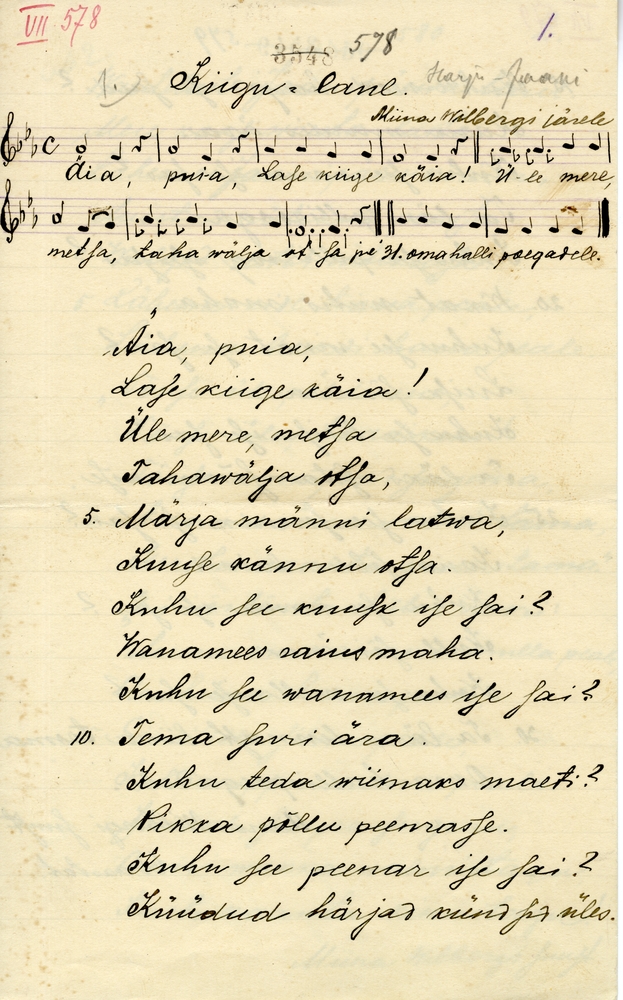 VII 578
3548 578
1.
1. Harju-Jaani
Kiigu-laul.
Miina Wilbergi järele
Äi a, pui-a, Lase kiige käia! Ü-le mere,
metsa, taha wälja ot-sa je 31. oma halli poegadele.
Äia, puia,
Lase kiige käia!
Üle mere, metsa
Tahawälja otsa,
5. Märja männi latwa,
Kuuse kännu otsa.
Kuhu see kuusk ise sai?
Wanamees raius maha.
Kuhu see wanamees ise sai?
10. Tema suri ära.
Kuhu teda wiimaks maeti?
Pikka põllu peenrasse.
Kuhu see peenar ise sai?
Küüdud härjad kündsid üles.